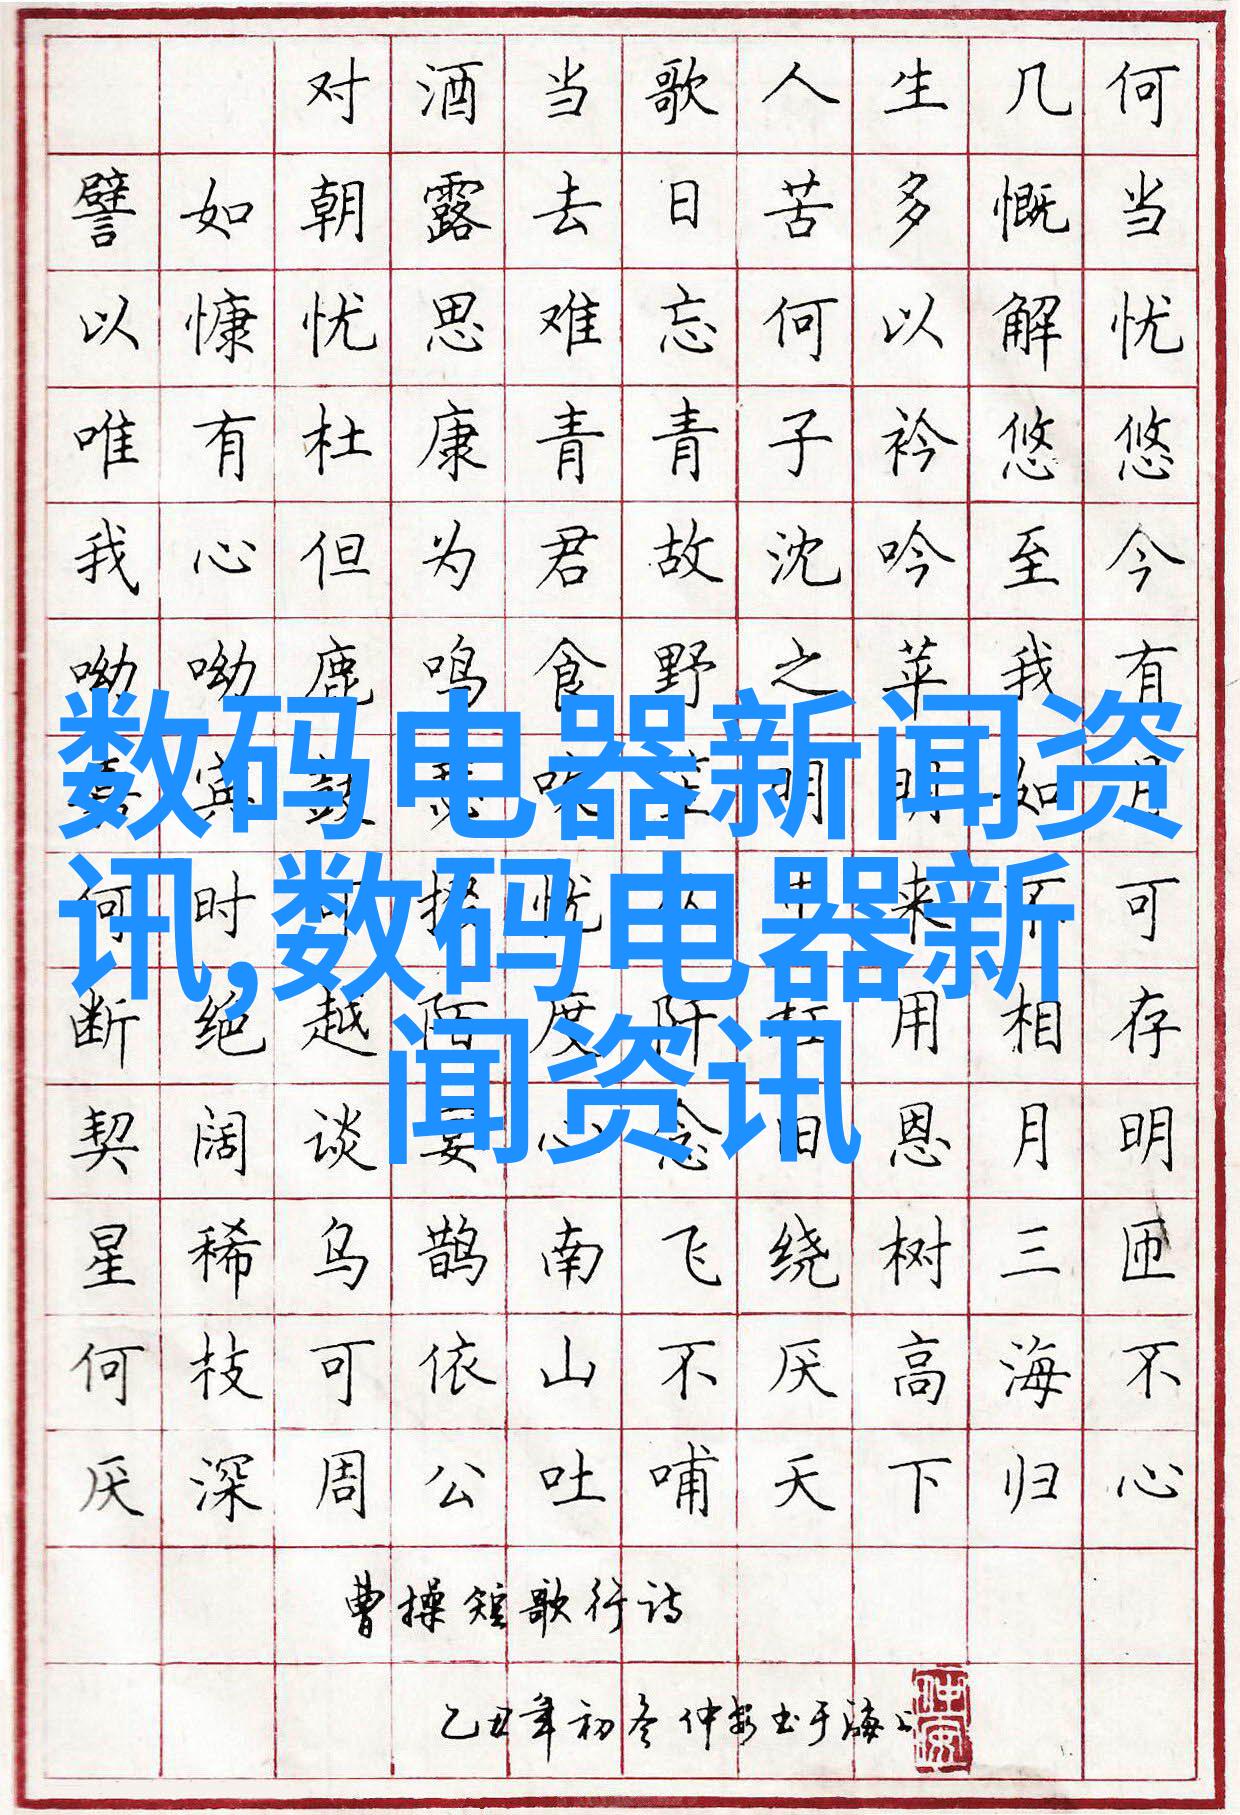 对酒当歌人生几何
譬如朝露去日苦多慨当
以慷忧思难忘何以解忧
唯有杜康青青子衿悠悠
我心但为君故沈吟至今
呦呦鹿鸣食野之苹我有
鼓瑟吹笙明明如月
何时可掇忧从中来不可
断绝越陌度阡枉用相存
契阔谈宴心念旧恩月明
星稀乌鹊南飞绕树三匝
何枝可依山不厌高海不
厌深周公吐哺天下归心
曹操短歌行诗
乙丑年初冬仲安书于海上
仲安
数码电器新闻资
讯,数码电器新
闻资讯